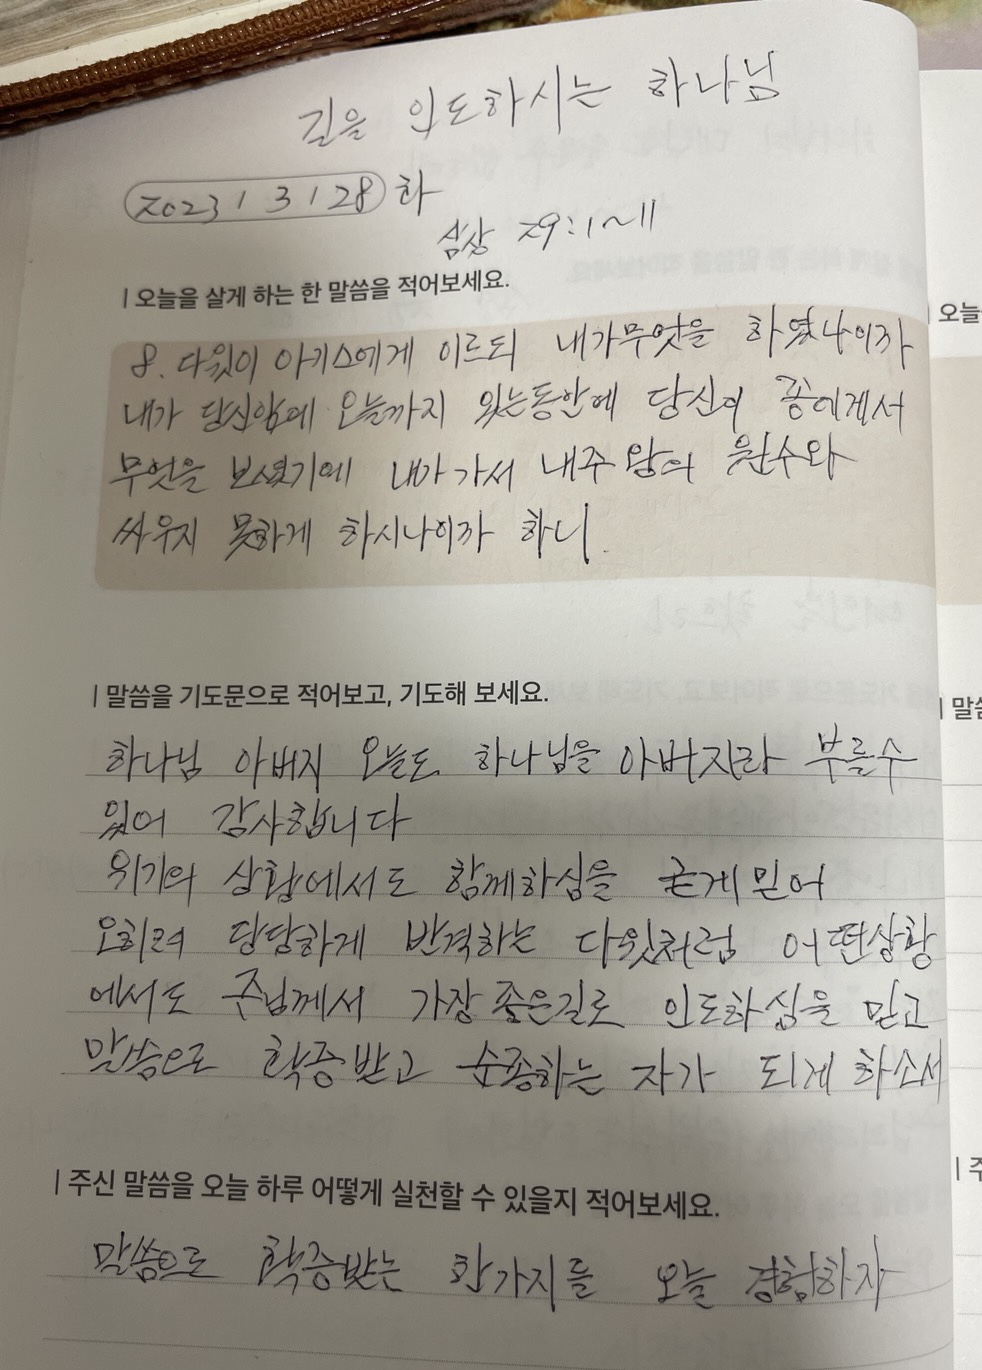 길을 인도하시는 하나님
2023 / 3 / 28 화
삼상 29:1~11
| 오늘을 살게 하는 한 말씀을 적어보세요.
8. 다윗이 아기스에게 이르되 내가무엇을 하였나이까
내가 당신앞에 오늘까지 있는동안에 당신이 종에게서
무엇을 보셨기에 내가 가서 내주 왕의 원수와
싸우지 못하게 하시나이까 하니
| 말씀을 기도문으로 적어보고, 기도해 보세요.
하나님 아버지 오늘도 하나님을 아버지라 부를수
있어 감사합니다
위기의 상황에서도 함께하심을 굳게 믿어
오히려 당당하게 반격하는 다윗처럼 어떤상황
에서도 주님께서 가장 좋은길로 인도하심을 믿고
말씀으로 확증받고 순종하는 자가 되게 하소서
| 주신 말씀을 오늘 하루 어떻게 실천할 수 있을지 적어보세요.
말씀으로 확증받는 한가지를 오늘 경험하자
| 오늘
| 말씀
| 주